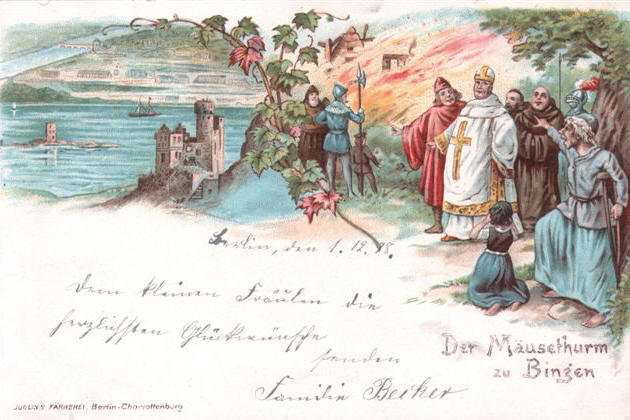 Berlin, den 1. 12. 98.
Dem kleinen Fräulen die
herzlichsten Glückwünsche
senden
Familie Becker
Der Mäusethurm
zu Bingen
JUDLIN'S FÄRBEREI, Berlin-Charlottenburg